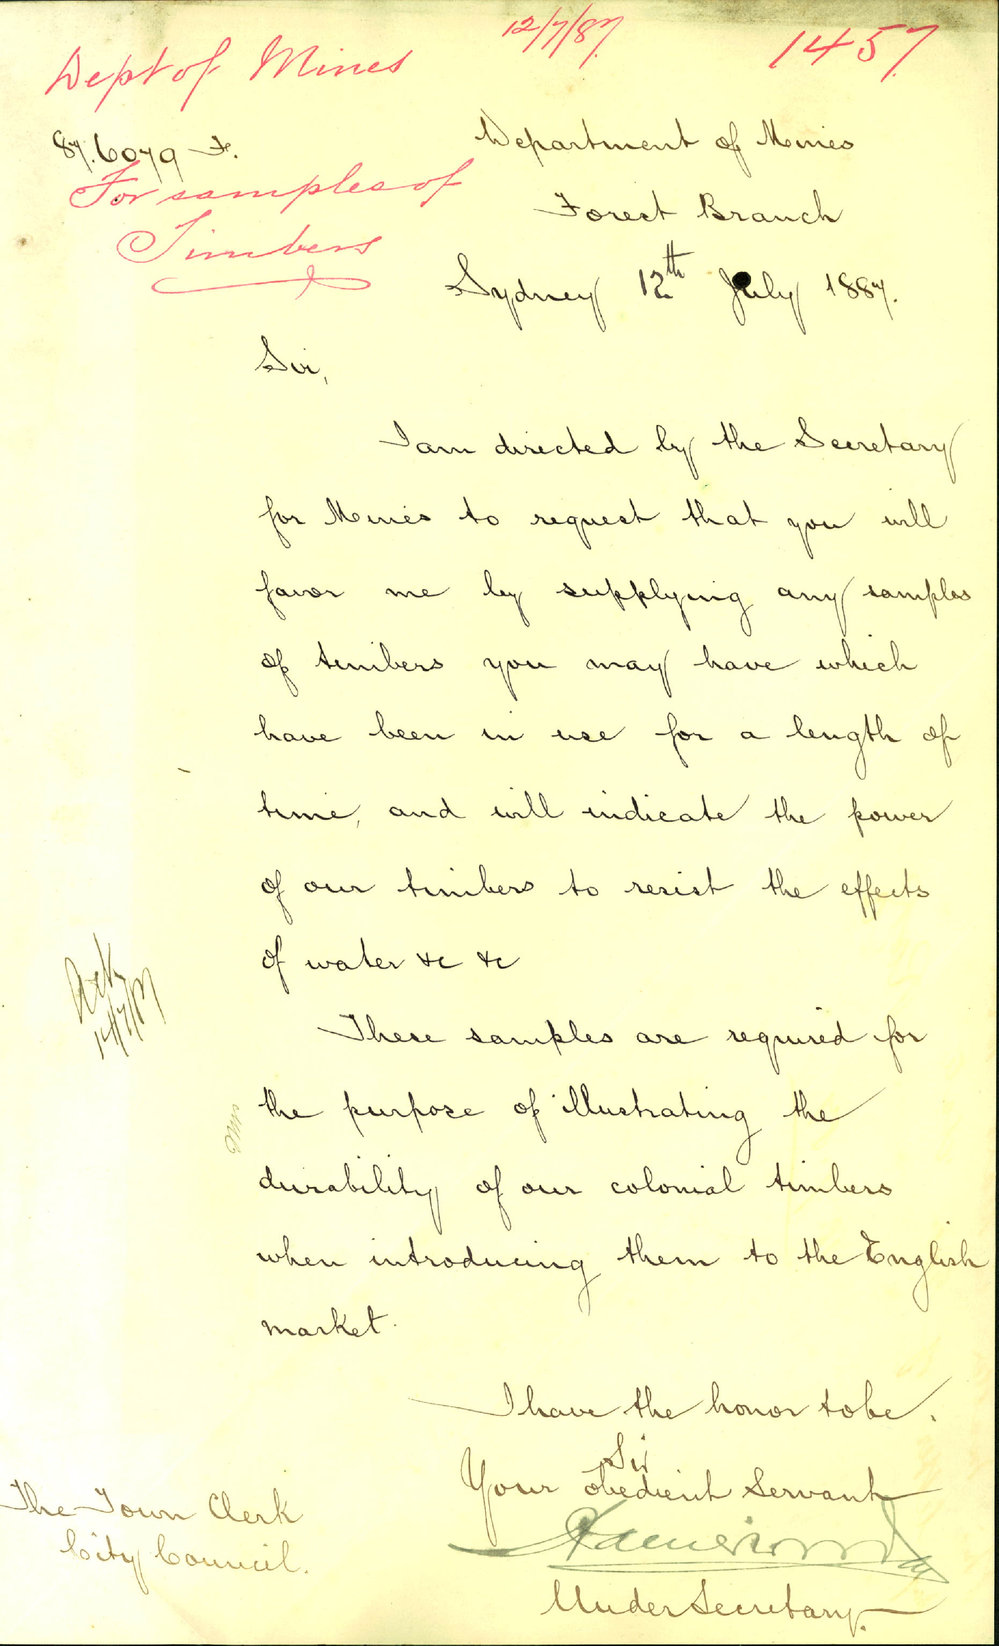 12/7/87
1457
Dept of Mines
87.6079 F.
For samples of
Timbers
Department of Mines
Forest Branch
Sydney 12th July 1887.
Sir,
I am directed by the Secretary
for Mines to request that you will
favor me by supplying any samples
of timbers you may have which
have been in use for a length of
time, and will indicate the power
of our timbers to resist the effects
of water &c &c
These samples are required for
the purpose of illustrating the
durability of our colonial timbers
when introducing them to the English
market.
Ack
14/7/87
I have the honor to be.
Sir
Your obedient Servant
Under Secretary.
The Town Clerk
City Council.